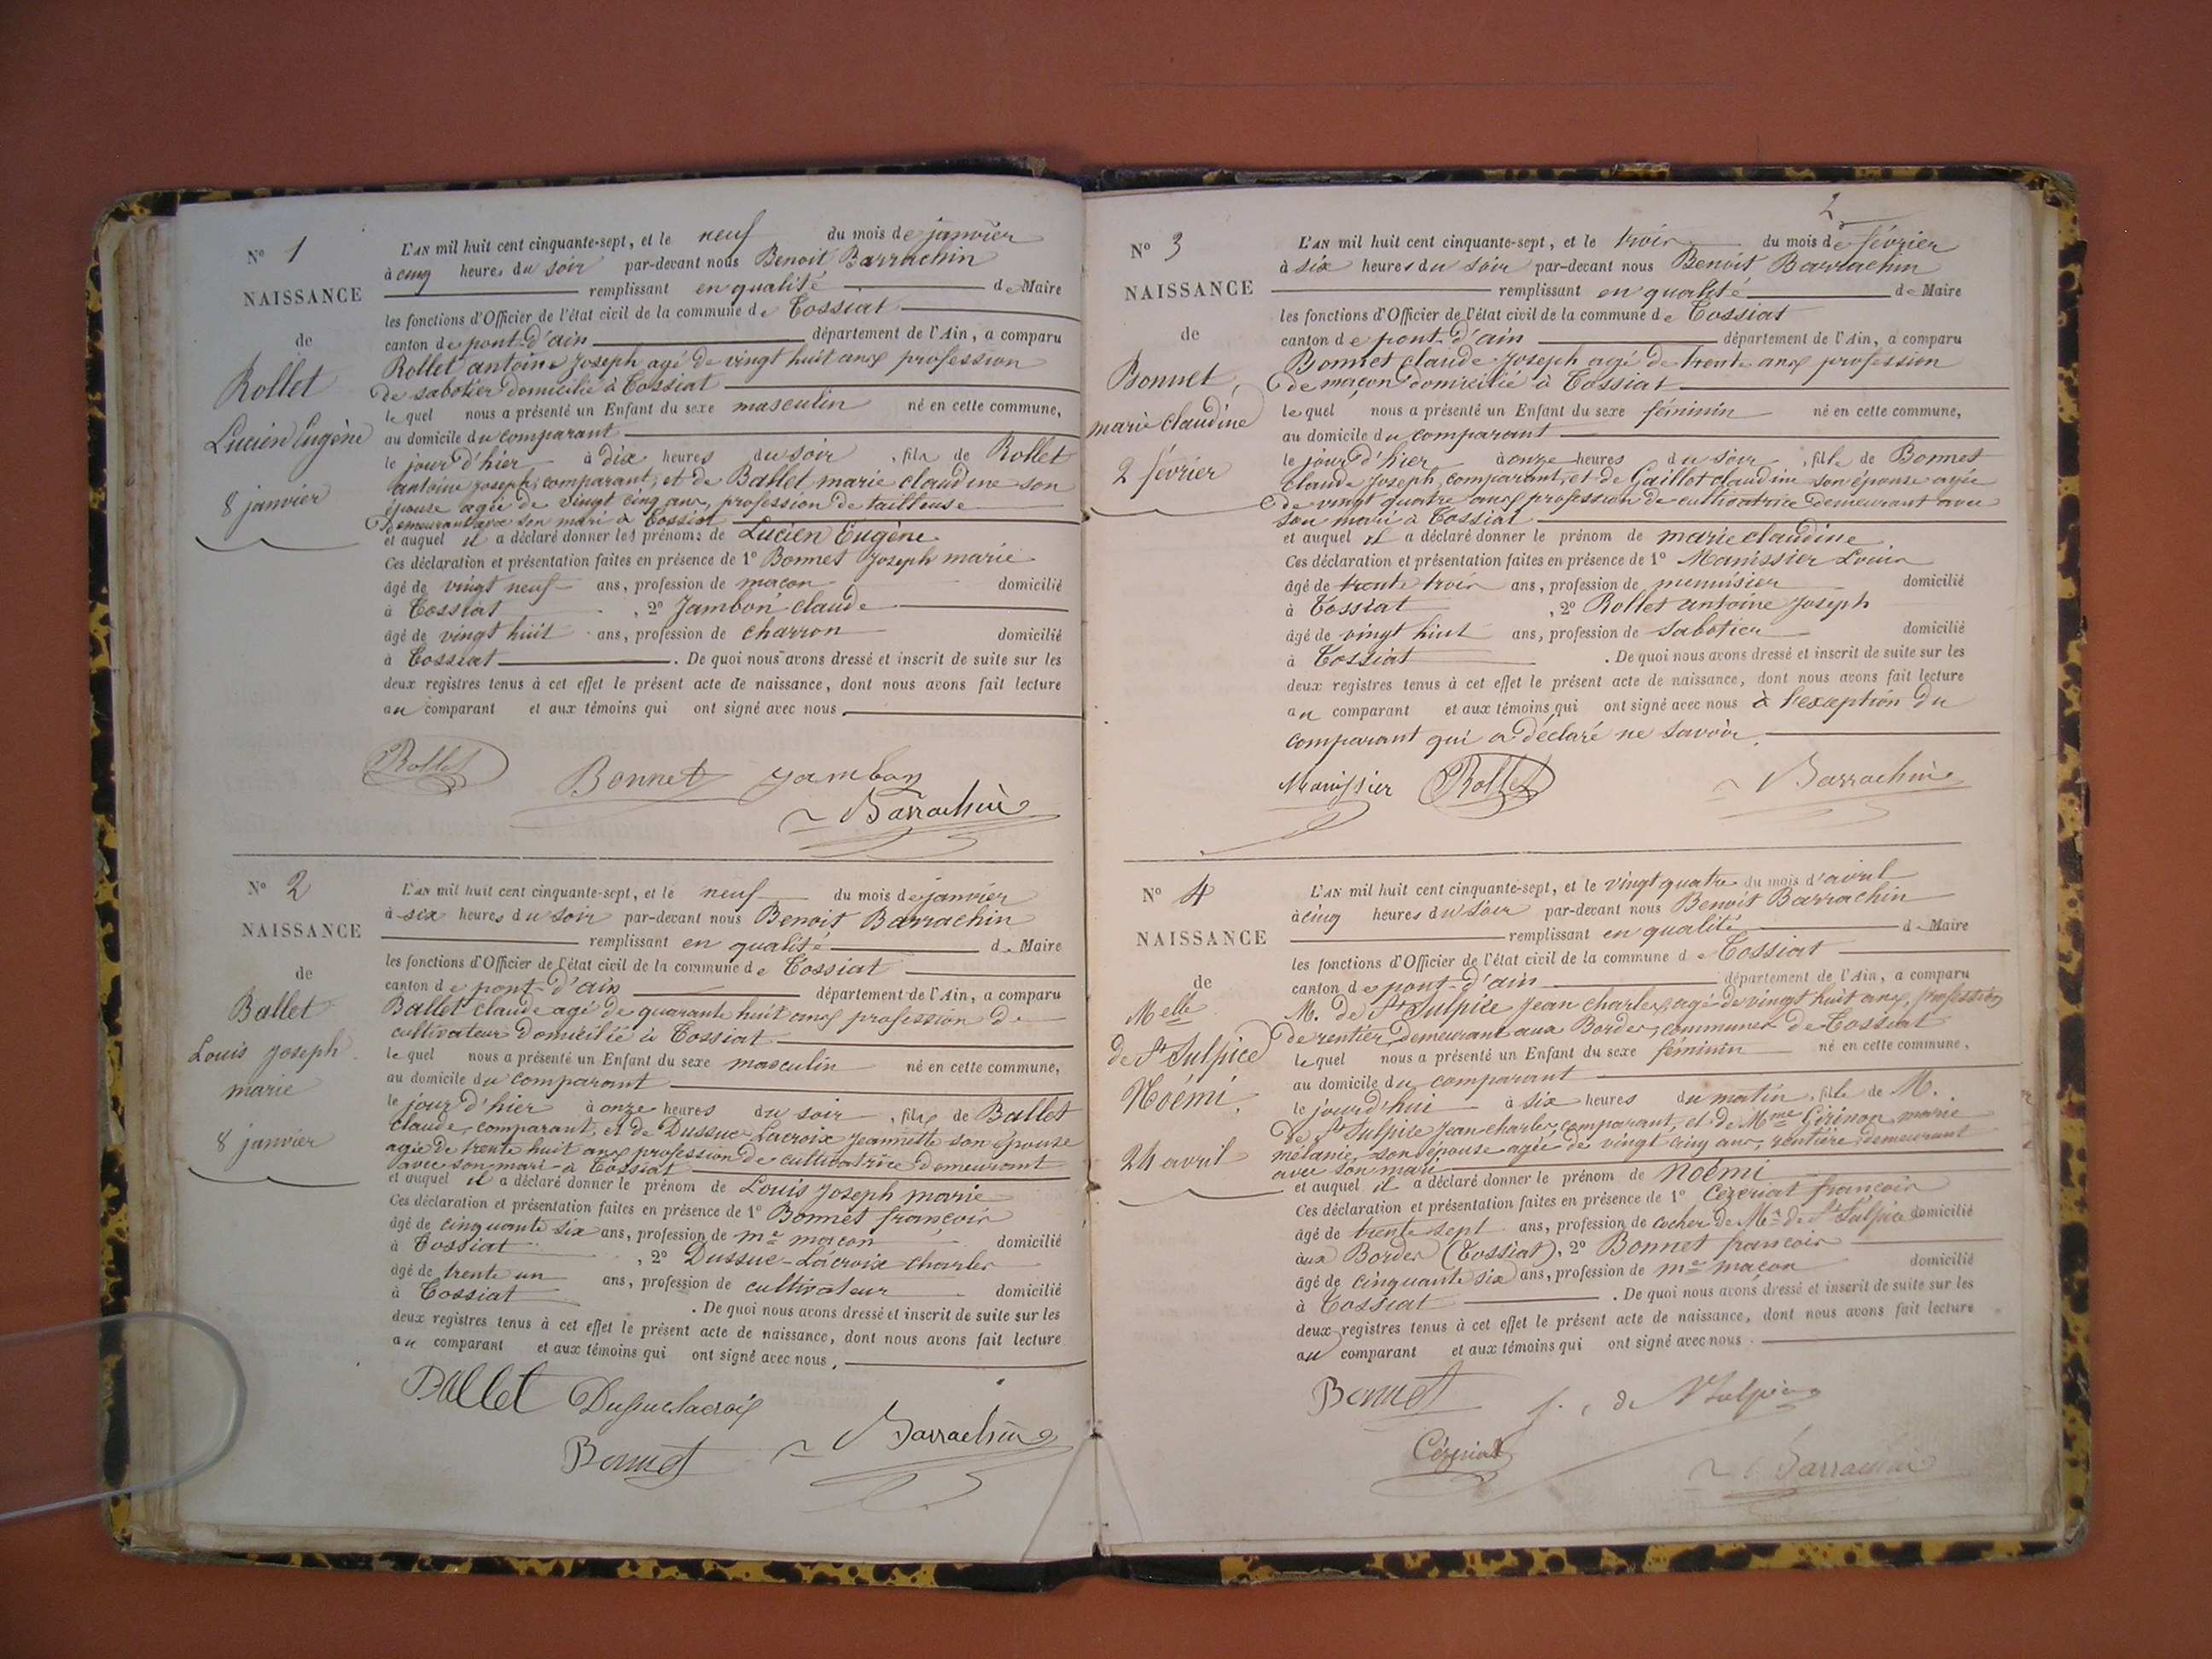 N° 1
NAISSANCE
de
Rollet
Lucien Eugène
8 janvier
L'AN mil huit cent cinquante-sept, et le neuf du mois de janvier
à cinq heures du soir par-devant nous Benoit Barrachin
remplissant en qualité de Maire
les fonctions d'Officier de l'état civil de la commune de Tossiat
canton de pont-d'ain département de l'Ain, a comparu
Rollet antoine Joseph agé de vingt huit ans profession
de sabotier domicilié à Tossiat
le quel nous a présenté un Enfant du sexe masculin né en cette commune,
au domicile du comparant
le jour d'hier à dix heures du soir, fils de Rollet
antoine joseph, comparant, et de Ballet marie claudine son
épouse agée de vingt cinq ans, profession de tailleuse
Demeurant avec son mari à Tossiat
et auquel il a déclaré donner les prénoms de Lucien Eugène
Ces déclaration et présentation faites en présence de 1° Bonnet Joseph marie
âgé de vingt neuf ans, profession de macon domicilié
à Tossiat, 2° Jambon claude
âgé de vingt huit ans, profession de charron domicilié
à Tossiat. De quoi nous avons dressé et inscrit de suite sur les
deux registres tenus à cet effet le présent acte de naissance, dont nous avons fait lecture
au comparant et aux témoins qui ont signé avec nous.
Rollet
Bonnet Jambon
Barrachin
N° 2
NAISSANCE
de
Ballet
Louis Joseph
marie
8 janvier
L'AN mil huit cent cinquante-sept, et le neuf du mois de janvier
à six heures du soir par-devant nous Benoit Barrachin
remplissant en qualité de Maire
les fonctions d'Officier de l'état civil de la commune de Tossiat
canton de pont-d'ain département de l'Ain, a comparu
Ballet claude agé de quarante huit ans profession de
cultivateur domicilié à Tossiat
le quel nous a présenté un Enfant du sexe masculin né en cette commune,
au domicile du comparant
le jour d'hier à onze heures du soir, fils de Ballet
claude, comparant, et de Dussuc-Lacroix Jeannette son épouse
agée de trente huit ans profession de cultivatrice demeurant
avec son mari à Tossiat
et auquel il a déclaré donner le prénom de Louis Joseph marie
Ces déclaration et présentation faites en présence de 1° Bonnet francois
âgé de cinquante six ans, profession de me macon domicilié
à Tossiat, 2° Dussuc-Lacroix charles
âgé de trente un ans, profession de cultivateur domicilié
à Tossiat. De quoi nous avons dressé et inscrit de suite sur les
deux registres tenus à cet effet le présent acte de naissance, dont nous avons fait lecture
au comparant et aux témoins qui ont signé avec nous.
Ballet Dussuclacroix
Bonnet Barrachin
2
N° 3
NAISSANCE
de
Bonnet,
marie claudine
2 février
L'AN mil huit cent cinquante-sept, et le trois du mois de février
à six heures du soir par-devant nous Benoit Barrachin
remplissant en qualité de Maire
les fonctions d'Officier de l'état civil de la commune de Tossiat
canton de pont-d'ain département de l'Ain, a comparu
Bonnet claude Joseph agé de trente ans profession
de maçon domicilié à Tossiat
le quel nous a présenté un Enfant du sexe féminin né en cette commune,
au domicile du comparant
le jour d'hier à onze heures du soir, fille de Bonnet
claude Joseph, comparant, et de Gaillot claudine son épouse agée
de vingt quatre ans profession de cultivatrice demeurant avec
son mari à Tossiat
et auquel il a déclaré donner le prénom de marie claudine
Ces déclaration et présentation faites en présence de 1° Manissier Louis
âgé de trente trois ans, profession de menuisier domicilié
à Tossiat, 2° Rollet antoine Joseph
âgé de vingt huit ans, profession de sabotier domicilié
à Tossiat. De quoi nous avons dressé et inscrit de suite sur les
deux registres tenus à cet effet le présent acte de naissance, dont nous avons fait lecture
au comparant et aux témoins qui ont signé avec nous à l'exception du
comparant qui a déclaré ne savoir.
Manissier Rollet Barrachin
N° 4
NAISSANCE
de
Melle
de St Sulpice
Noémi.
24 avril
L'AN mil huit cent cinquante-sept, et le vingt quatre du mois d'avril
à cinq heures du soir par-devant nous Benoit Barrachin
remplissant en qualité de Maire
les fonctions d'Officier de l'état civil de la commune de Tossiat
canton de pont-d'ain département de l'Ain, a comparu
M. de St Sulpice Jean charles, agé de vingt huit ans, profession
de rentier, demeurant aux Bordes, communes de Tossiat
le quel nous a présenté un Enfant du sexe féminin né en cette commune,
au domicile du comparant
le jourd'hui à six heures du matin, fille de M.
de St Sulpice Jean charles, comparant, et de Mme Girinon marie
mélanie, son épouse agée de vingt cinq ans, rentière, demeurant
avec son mari
et auquel il a déclaré donner le prénom de Noémi
Ces déclaration et présentation faites en présence de 1° Cezeriat françois
âgé de trente sept ans, profession de cocher de Mr de St Sulpice domicilié
aux Bordes (Tossiat), 2° Bonnet francois
âgé de cinquante six ans, profession de me macon domicilié
à Tossiat. De quoi nous avons dressé et inscrit de suite sur les
deux registres tenus à cet effet le présent acte de naissance, dont nous avons fait lecture
au comparant et aux témoins qui ont signé avec nous.
Bonnet de St Sulpice
Cézeriat
Barrachin